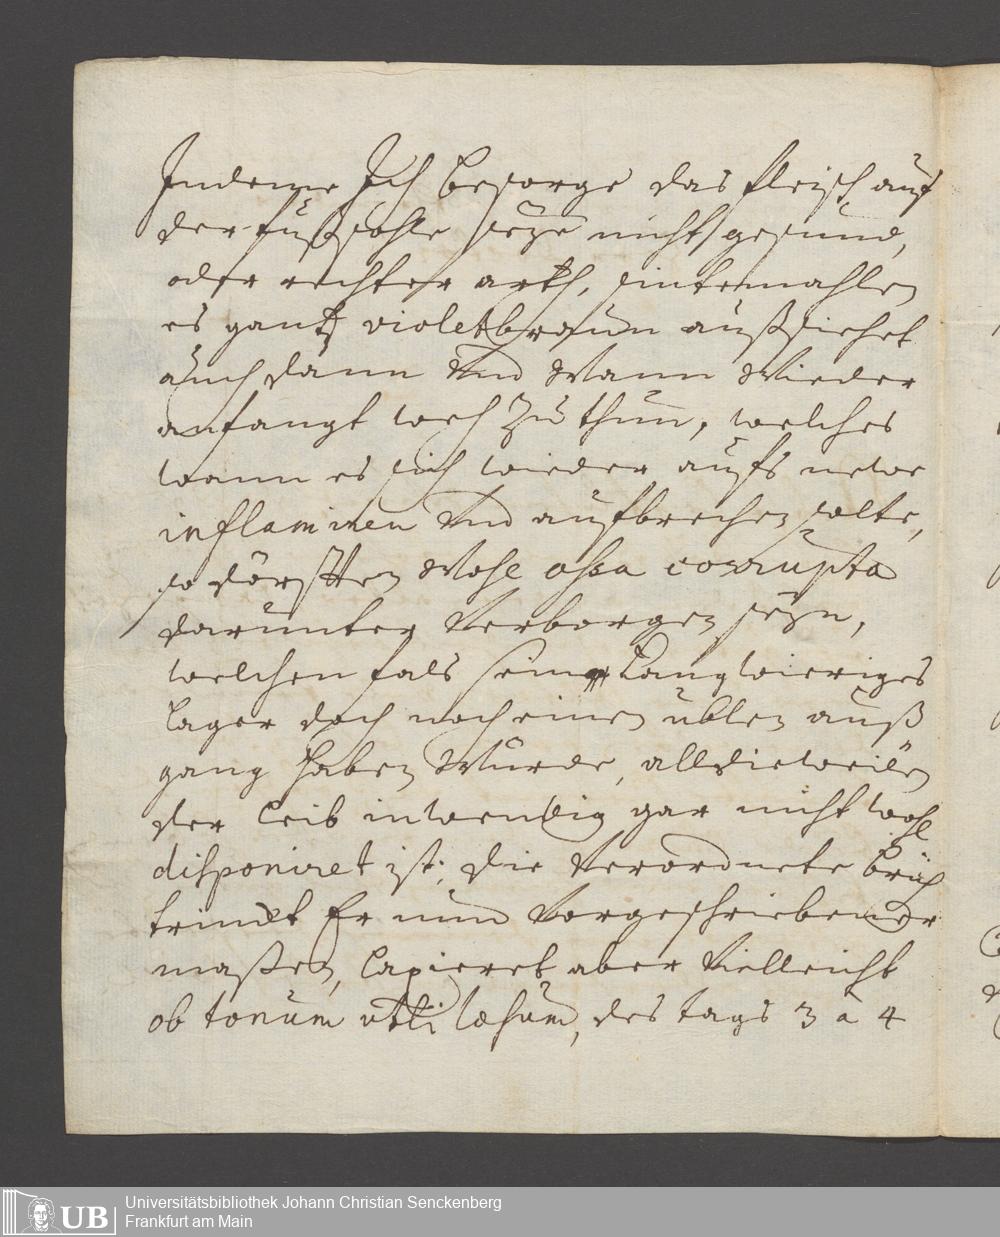 Indeme Ich besorge das fleisch auf
der fußsohle seye nicht gesund,
oder rechter arth, sintemahlen
es gantz violetbraun außsiehet
auch dann und wann wieder
anfangt weh zu thun, welches
wann es sich wieder aufs newe
inflamiren und aufbrechen solte,
so dörfften wohl ossa corrupta
darunter verborgen seyn,
welchen fals sein langwieriges
lager doch noch einen üblen auß
gang haben würde, alldieweilen
der leib inwendig gar nicht wohl
disponiret ist; die verordnete brüh
trinckt Er nun vorgeschriebener
maßen, laxieret aber vielleicht
ob tonum læsum, des tags 3 a 4
Universitätsbibliothek Johann Christian Senckenberg
Frankfurt am Main
UB